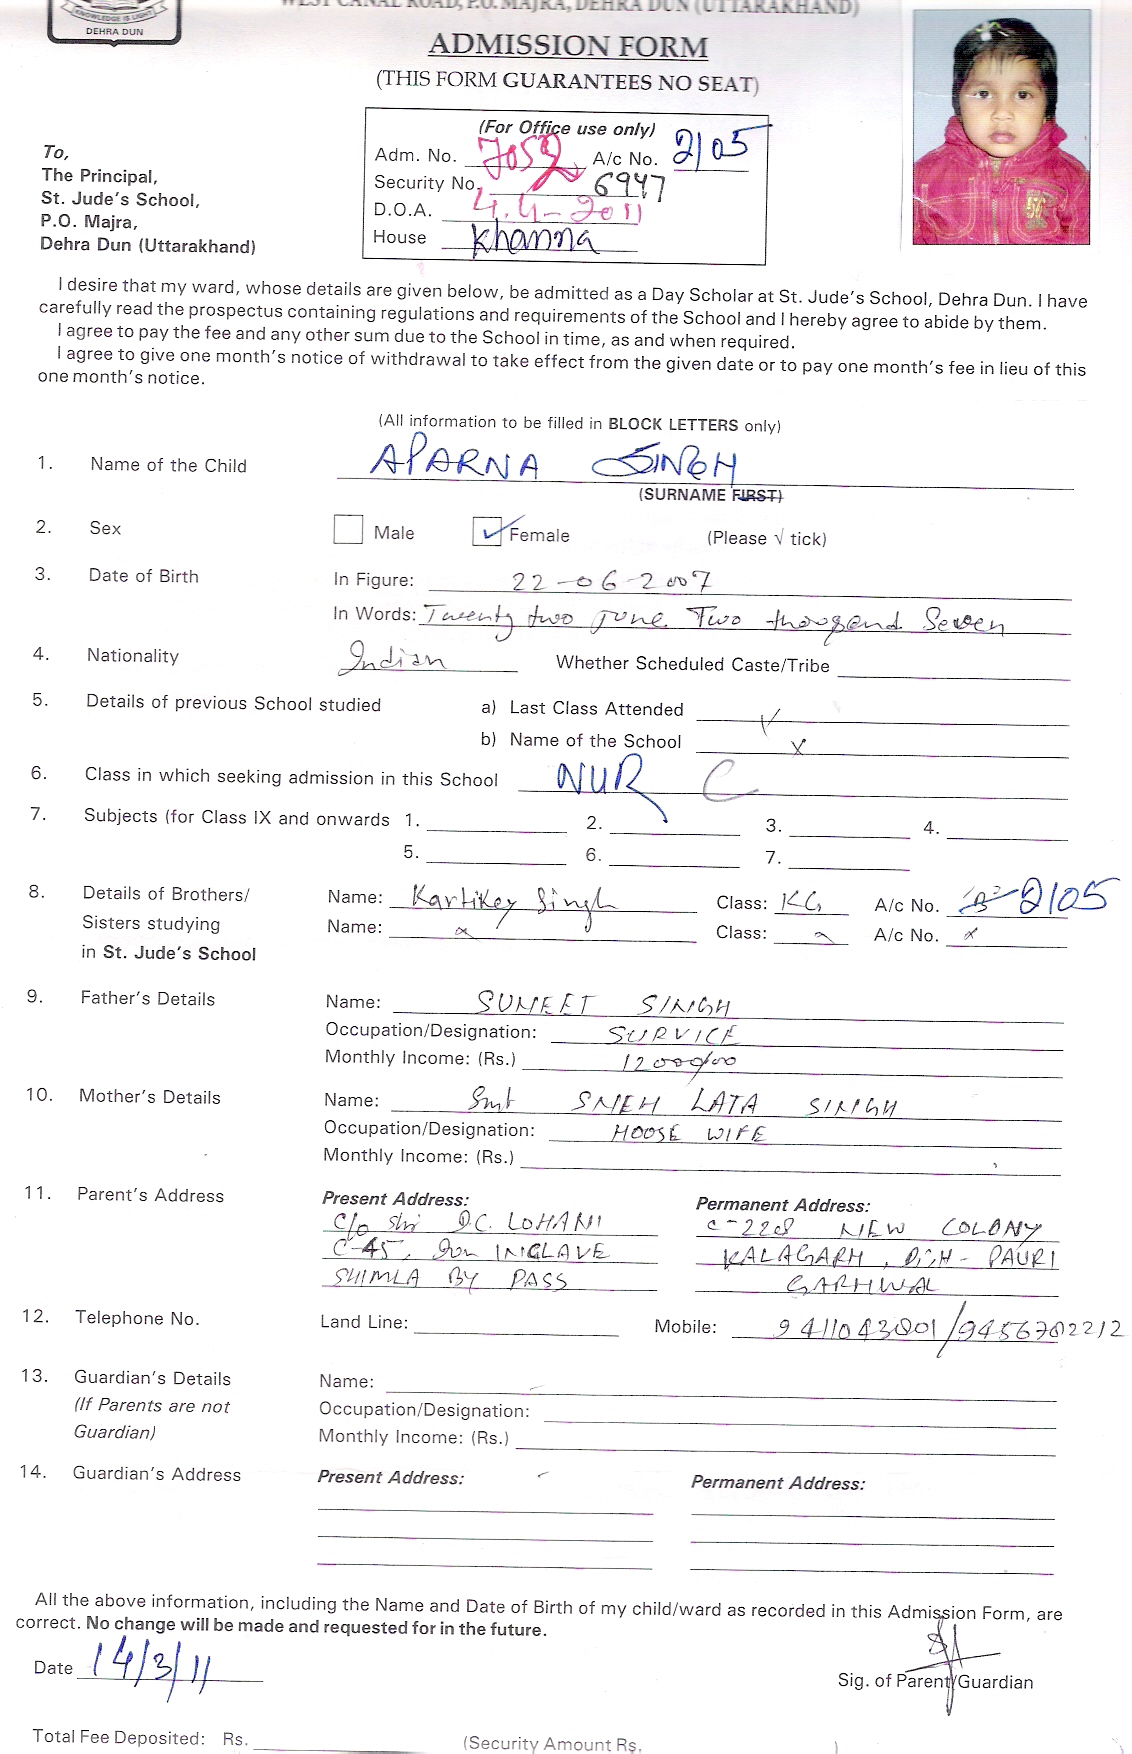 WEST CANAL ROAD, P.O. MAJRA, DEHRA DUN (UTTARAKHAND)
KNOWLEDGE IS LIGHT
DEHRA DUN
ADMISSION FORM
(THIS FORM GUARANTEES NO SEAT)
(For Office use only)
Adm. No. 7052 A/c No. 2105
Security No. 6947
D.O.A. 4.4-2011
House Khanna
To,
The Principal,
St. Jude's School,
P.O. Majra,
Dehra Dun (Uttarakhand)
I desire that my ward, whose details are given below, be admitted as a Day Scholar at St. Jude's School, Dehra Dun. I have
carefully read the prospectus containing regulations and requirements of the School and I hereby agree to abide by them.
I agree to pay the fee and any other sum due to the School in time, as and when required.
I agree to give one month's notice of withdrawal to take effect from the given date or to pay one month's fee in lieu of this
one month's notice.
(All information to be filled in BLOCK LETTERS only)
1. Name of the Child APARNA SINGH
(SURNAME FIRST)
2. Sex Male Female (Please √ tick)
3. Date of Birth In Figure: 22-06-2007
In Words: Twenty two June Two thousend Seven
4. Nationality Indian Whether Scheduled Caste/Tribe
5. Details of previous School studied a) Last Class Attended
b) Name of the School x
6. Class in which seeking admission in this School NUR C
7. Subjects (for Class IX and onwards 1. 2. 3. 4.
5. 6. 7.
8. Details of Brothers/ Name: Kartikey Singh Class: KG A/c No. 2105
Sisters studying Name: x Class: A/c No. x
in St. Jude's School
9. Father's Details Name: SUMEET SINGH
Occupation/Designation: SURVICE
Monthly Income: (Rs.) 12000/00
10. Mother's Details Name: Smt SNEH LATA SINGH
Occupation/Designation: HOOSE WIFE
Monthly Income: (Rs.)
11. Parent's Address Present Address: Permanent Address:
C/o Shri D.C. LOHANI C-228 NEW COLONY
C-45, INCLAVE KALAGARH, PAURI
SHIMLA BY PASS GARHWAL
12. Telephone No. Land Line: Mobile: 9411043801/9456702212
13. Guardian's Details Name:
(If Parents are not Occupation/Designation:
Guardian) Monthly Income: (Rs.)
14. Guardian's Address Present Address: Permanent Address:
All the above information, including the Name and Date of Birth of my child/ward as recorded in this Admission Form, are
correct. No change will be made and requested for in the future.
Date 14/3/11
Sig. of Parent/Guardian
Total Fee Deposited: Rs. (Security Amount Rs. )